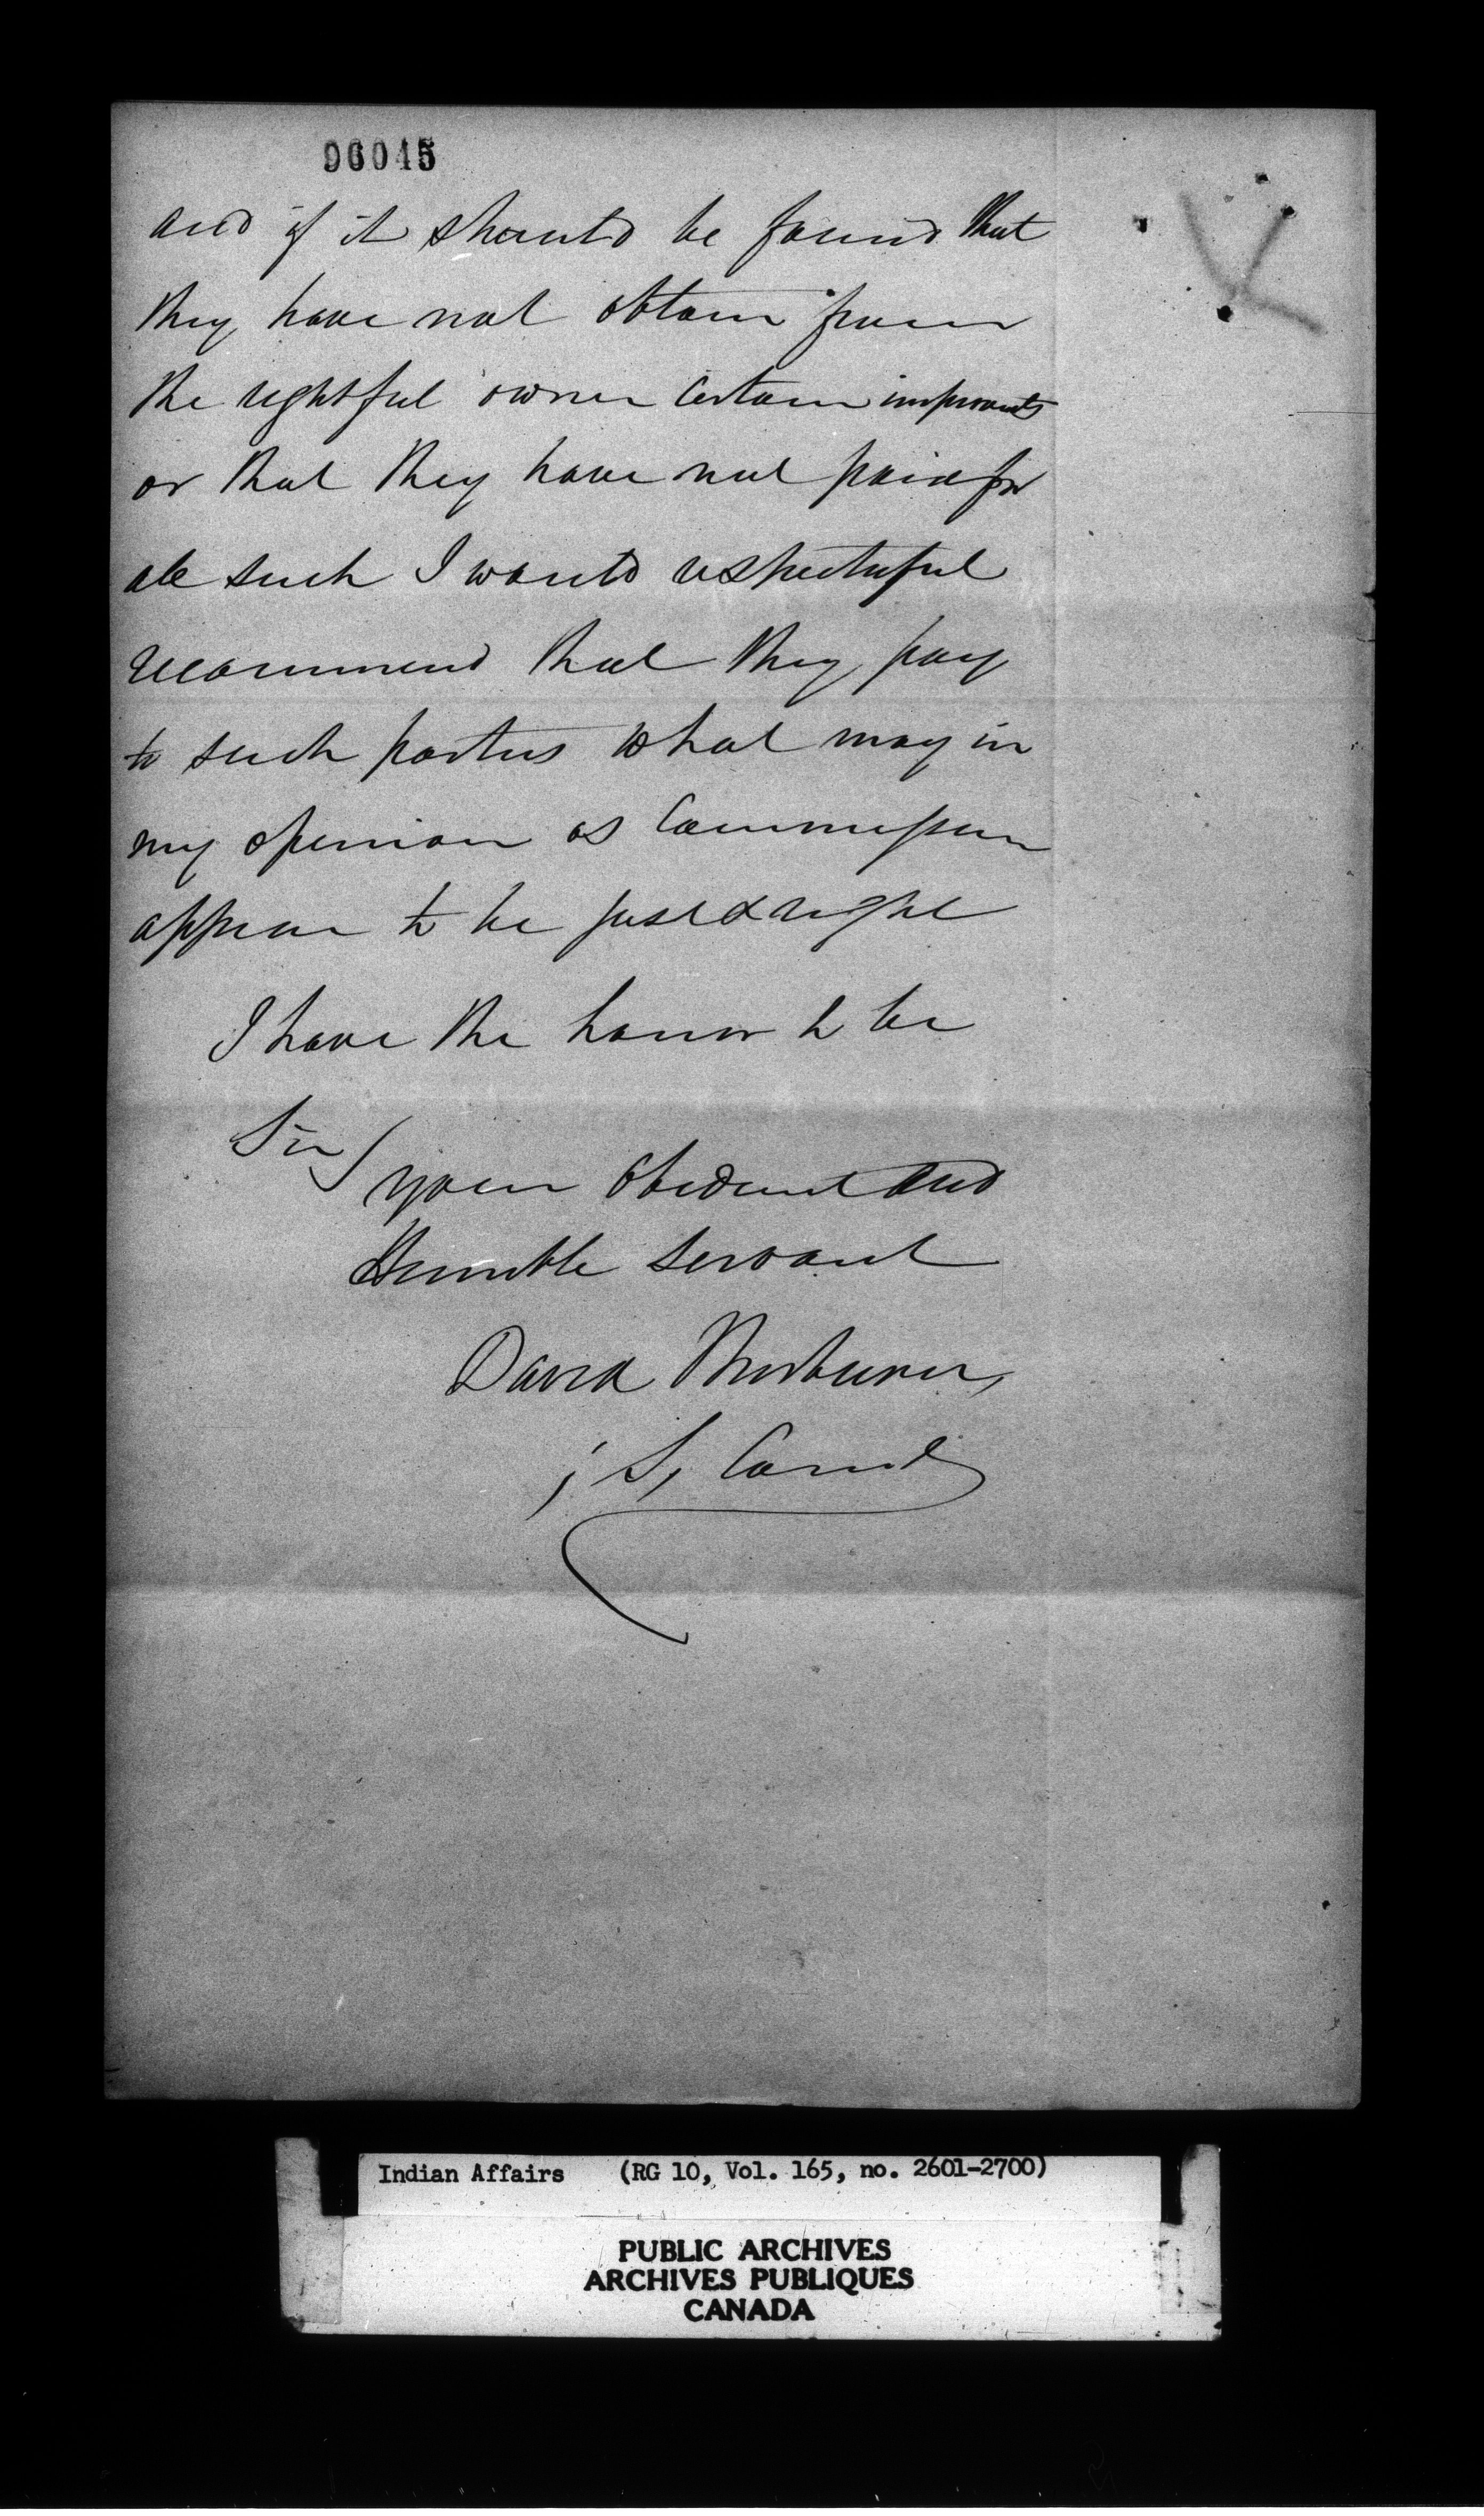 96045
and if it should be found that
they have not obtain from
the rightful owner certain improvmts
or that they have not paid for
all such I would respectuful
recommend that they pay
to such parties what may in
my opinion as Commissioner
appear to be just & right
I have the honor to be
Sir
your obedient and
Humble Servant
David Thorburn
S. Comr
Indian Affairs (RG 10, Vol. 165, no. 2601-2700)
PUBLIC ARCHIVES
ARCHIVES PUBLIQUES
CANADA